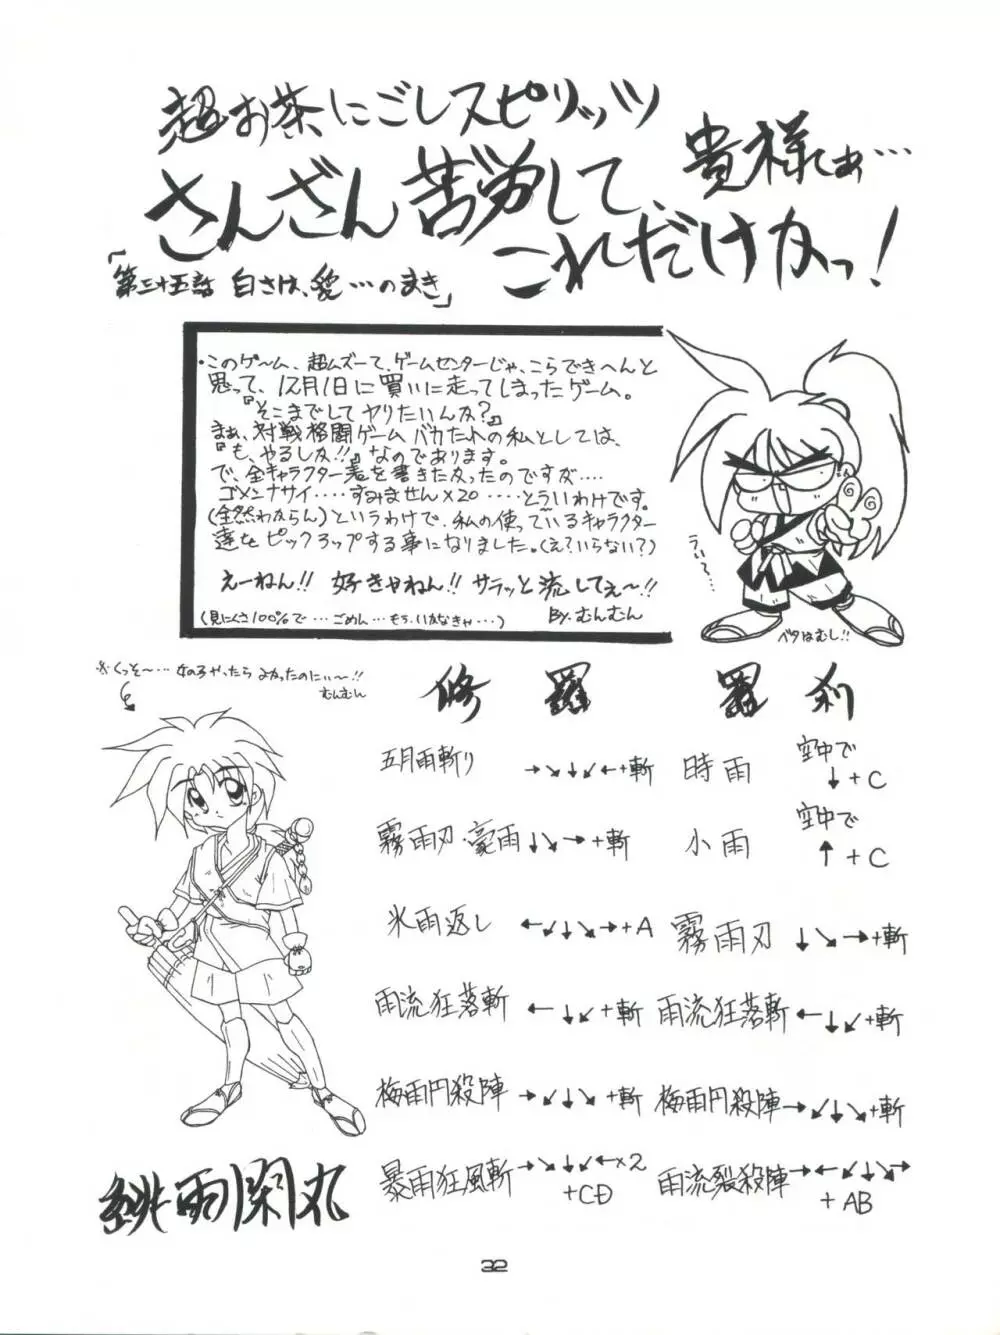 超お茶にごしスピリッツ
さんざん苦労して、
貴様てぁ…
これだけかっ!
「第三十五話 白さは、貌…のまき」
・このゲーム、超ムズーて、ゲームセンターじゃ、こらできへんと
思って、12月1日に買いに走ってしまったゲーム。
『そこまでしてヤりたいんか?』
まぁ、対戦格闘ゲームバカたれの私としては、
『も、やるしか!!』なのであります。
で、全キャラクター表を書きたかったのですが‥‥
ゴメンナサイ‥‥すみません×20‥‥とういわけです。
(全然わからん)というわけで、私の使っているキャラクター
達をピックアップする事になりました。(え?いらない?)
えーねん!! 好きやねん!! サラッと流してぇ〜!!
(見にくさ100%で…ごめん…もぅ、いかなきゃ…)
By.むんむん
うぃ〜‥
ベタはむし!!
※くっそ〜…女の子やったらよかったのにぃ〜!!
むんむん
修羅 羅刹
五月雨斬り →↘↓↙←+斬 時雨 空中で↓+C
霧雨刃・豪雨 ↓↘→+斬 小雨 空中で↑+C
氷雨返し ←↙↓↘→+A 霧雨刃 ↓↘→+斬
雨流狂落斬 ←↓↙+斬 雨流狂落斬 ←↓↙+斬
梅雨円殺陣 →↙↓↘+斬 梅雨円殺陣 →↙↓↘+斬
暴雨狂風斬 →↘↓↙←×2+CD 雨流裂殺陣 →←↙↓↘→+AB
緋雨閑丸
32